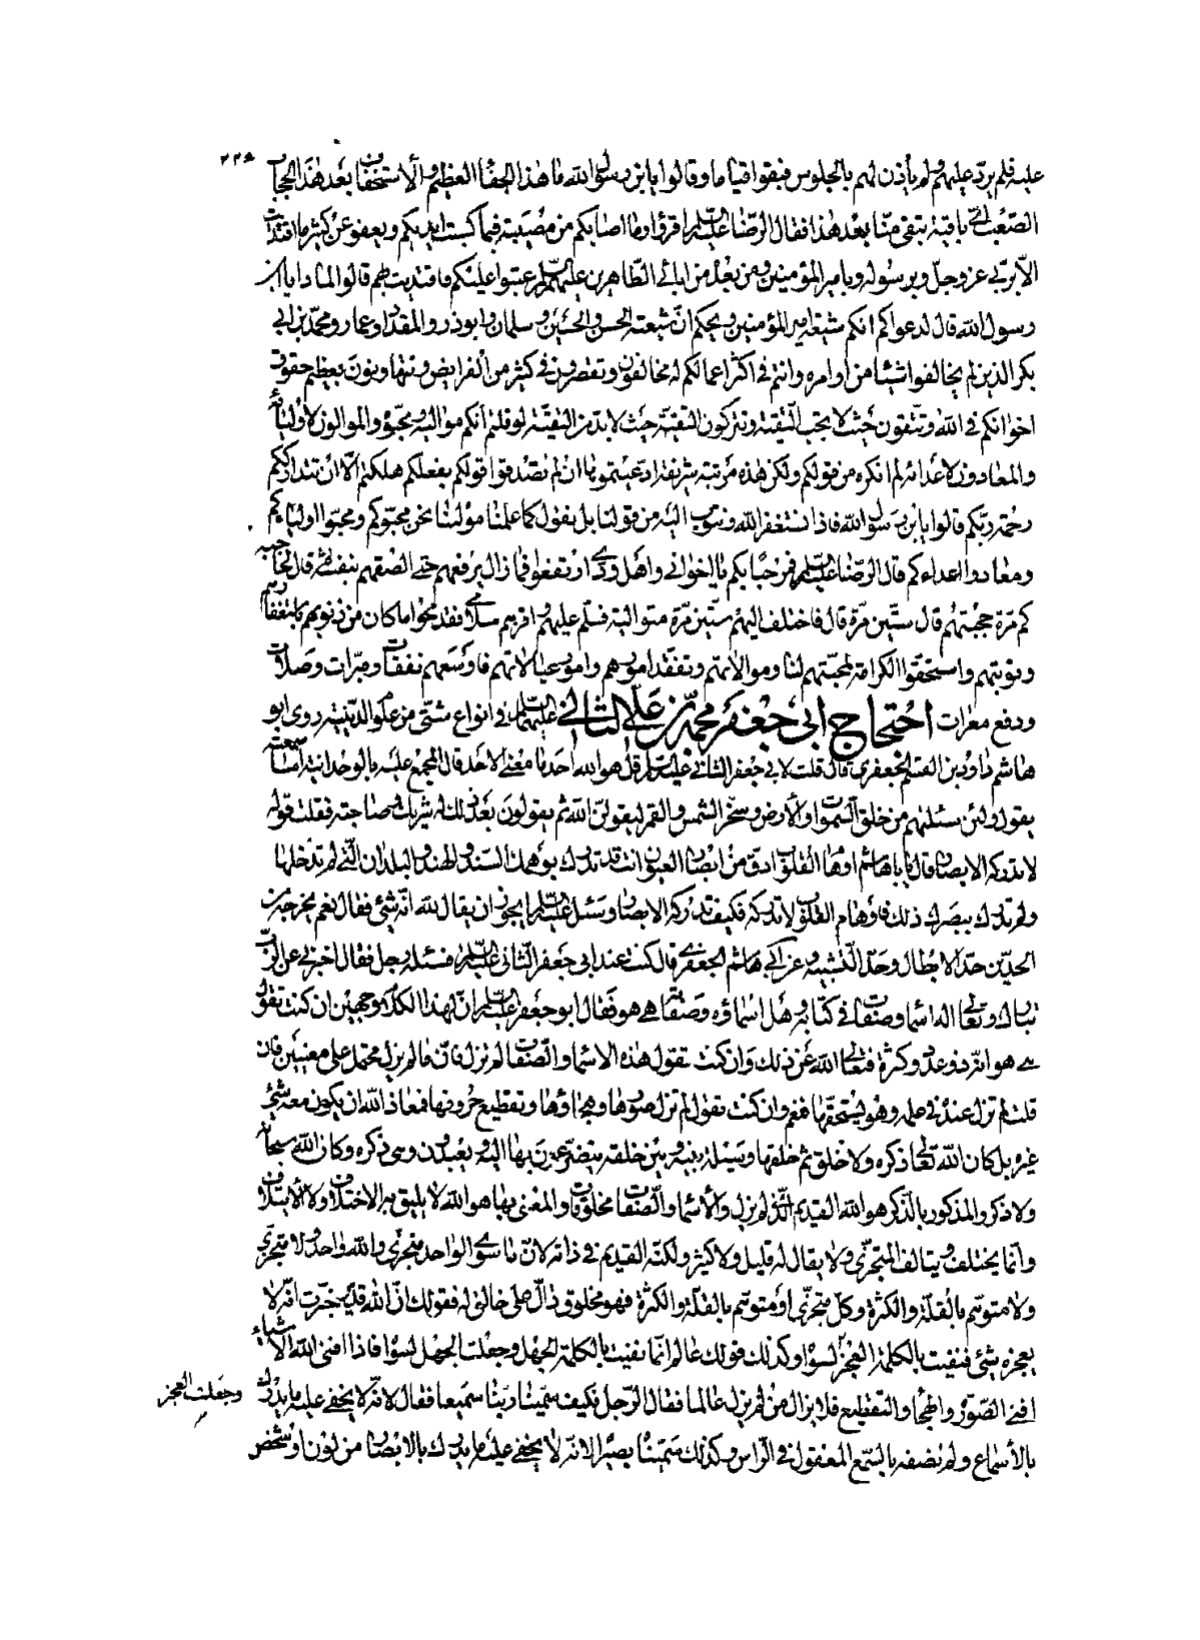 ٢٢٥
عليه فلم يرد عليهم ولم يأذن لهم بالجلوس فبقوا قياما وقالوا يا ابن رسول الله ما هذا الجفاء العظيم والاستخفاف بعد هذا الحجاب
الصعب اي باقية تبقى منا بعد هذا فقال الرضا عليه السلام اقرؤا وما اصابكم من مصيبة فبما كسبت ايديكم ويعفو عن كثير ما اقتديت
الا بربي عز وجل وبرسوله وبامير المؤمنين ومن بعده من ابائي الطاهرين عليهم السلم عتبوا عليكم فاقتديت بهم قالوا لماذا يا ابن
رسول الله قال لدعواكم انكم شيعة امير المؤمنين ويحكم ان شيعته الحسن والحسين وسلمان وابوذر والمقداد وعمار ومحمد بن ابي
بكر الذين لم يخالفوا شيئا من اوامره وانتم في اكثر اعمالكم له مخالفون وتقصرون في كثير من الفرايض وتتهاونون بعظيم حقوق
اخوانكم في الله وتتقون حيث لا يجب التقية وتتركون التقية حيث لا بد من التقية لو قلتم انكم مواليه ومحبوه والموالون لاوليائه
والمعادون لاعدائه لم انكره من قولكم ولكن هذه مرتبة شريفة ادعيتموها ان لم تصدقوا قولكم بفعلكم هلكتم الا ان تتدارككم
رحمة ربكم قالوا يا ابن رسول الله فاذا نستغفر الله ونتوب اليه من قولنا بل نقول كما علمنا مولينا نحن محبوكم ومحبوا اوليائكم
ومعادوا اعدائكم قال الرضا عليه السلم فمرحبا بكم يا اخواني واهل ودي ارتفعوا فما زال يرفعهم حتى الصقهم بنفسه ثم قال لحاجبه
كم مرة حجبتهم قال ستين مرة قال فاختلف اليهم ستين مرة متوالية فسلم عليهم واقرئهم سلامي فقد محوا ما كان من ذنوبهم باستغفارهم
وتوبتهم واستحقوا الكرامة لمحبتهم لنا وموالاتهم وتفقد امورهم وامور عيالاتهم فاوسعهم نفقات ومبرات وصلات
ودفع معرات احتجاج ابي جعفر محمد بن علي الثاني عليهما السلم في انواع شتى من علوم الدينية روى ابو
هاشم داود بن القسم الجعفري قال قلت لابي جعفر الثاني عليه السلم قل هو الله احد ما معنى الاحد قال المجمع عليه بالوحدانية اما سمعته
يقول ولئن سئلتهم من خلق السموات والارض وسخر الشمس والقمر ليقولن الله ثم يقولون بعد ذلك له شريك وصاحبة فقلت قوله
لا تدركه الابصار قال يا با هاشم اوهام القلوب ادق من ابصار العيون انت قد تدرك بوهمك السند والهند والبلدان التي لم تدخلها
ولم تدرك ببصرك ذلك فاوهام القلوب لا تدركه فكيف تدركه الابصار وسئل عليه السلم ايجوز ان يقال لله انه شئ فقال نعم يخرجه من
الحدين حد الابطال وحد التشبيه وعن ابي هاشم الجعفري قال كنت عند ابي جعفر الثاني عليه السلم فسئله رجل فقال اخبرني عن الرب
تبارك وتعالى اله اسماء وصفات في كتابه وهل اسماؤه وصفاته هي هو فقال ابو جعفر عليه السلم ان لهذا الكلام وجهين ان كنت تقول
هي هو انه ذو عدد وكثرة فتعالى الله عن ذلك وان كنت تقول هذه الاسماء والصفات لم تزل فان ما لم يزل محتمل على معنيين فان
قلت لم تزل عنده في علمه وهو يستحقها فنعم وان كنت تقول لم تزل صورها وهجاؤها وتقطيع حروفها فمعاذ الله ان يكون معه شئ
غيره بل كان الله تعالى ذكره ولا خلق ثم خلقها وسيلة بينه وبين خلقه يتضرعون بها اليه ويعبدون وهي ذكره وكان الله سبحانه
ولا ذكر والمذكور بالذكر هو الله القديم الذي لم يزل والاسماء والصفات مخلوقات والمعني بها هو الله لا يليق به الاختلاف ولا الايتلاف
وانما يختلف ويتالف المتجزي ولا يقال له قليل ولا كثير ولكنه القديم في ذاته لان ما سوى الواحد متجزي والله واحد ولا متجزي
ولا متوهم بالقلة والكثرة وكل متجزي او متوهم بالقلة والكثرة فهو مخلوق دال على خالق له فقولك ان الله قدير خبرت انه لا
يعجزه شئ فنفيت بالكلمة العجز لسواه وكذلك قولك عالم انما نفيت بالكلمة الجهل وجعلت الجهل لسواه فاذا افنى الله الاشياء
افنى الصور والهجاء والتقطيع فلا يزال من لم يزل عالما فقال الرجل فكيف سمينا ربنا سميعا فقال لانه لا يخفى عليه ما يدرك
وجعلت العجز
بالاسماع ولم نصفه بالسمع المعقول في الراس وكذلك سميناه بصيرا لانه لا يخفى عليه ما يدرك بالابصار من لون او شخص